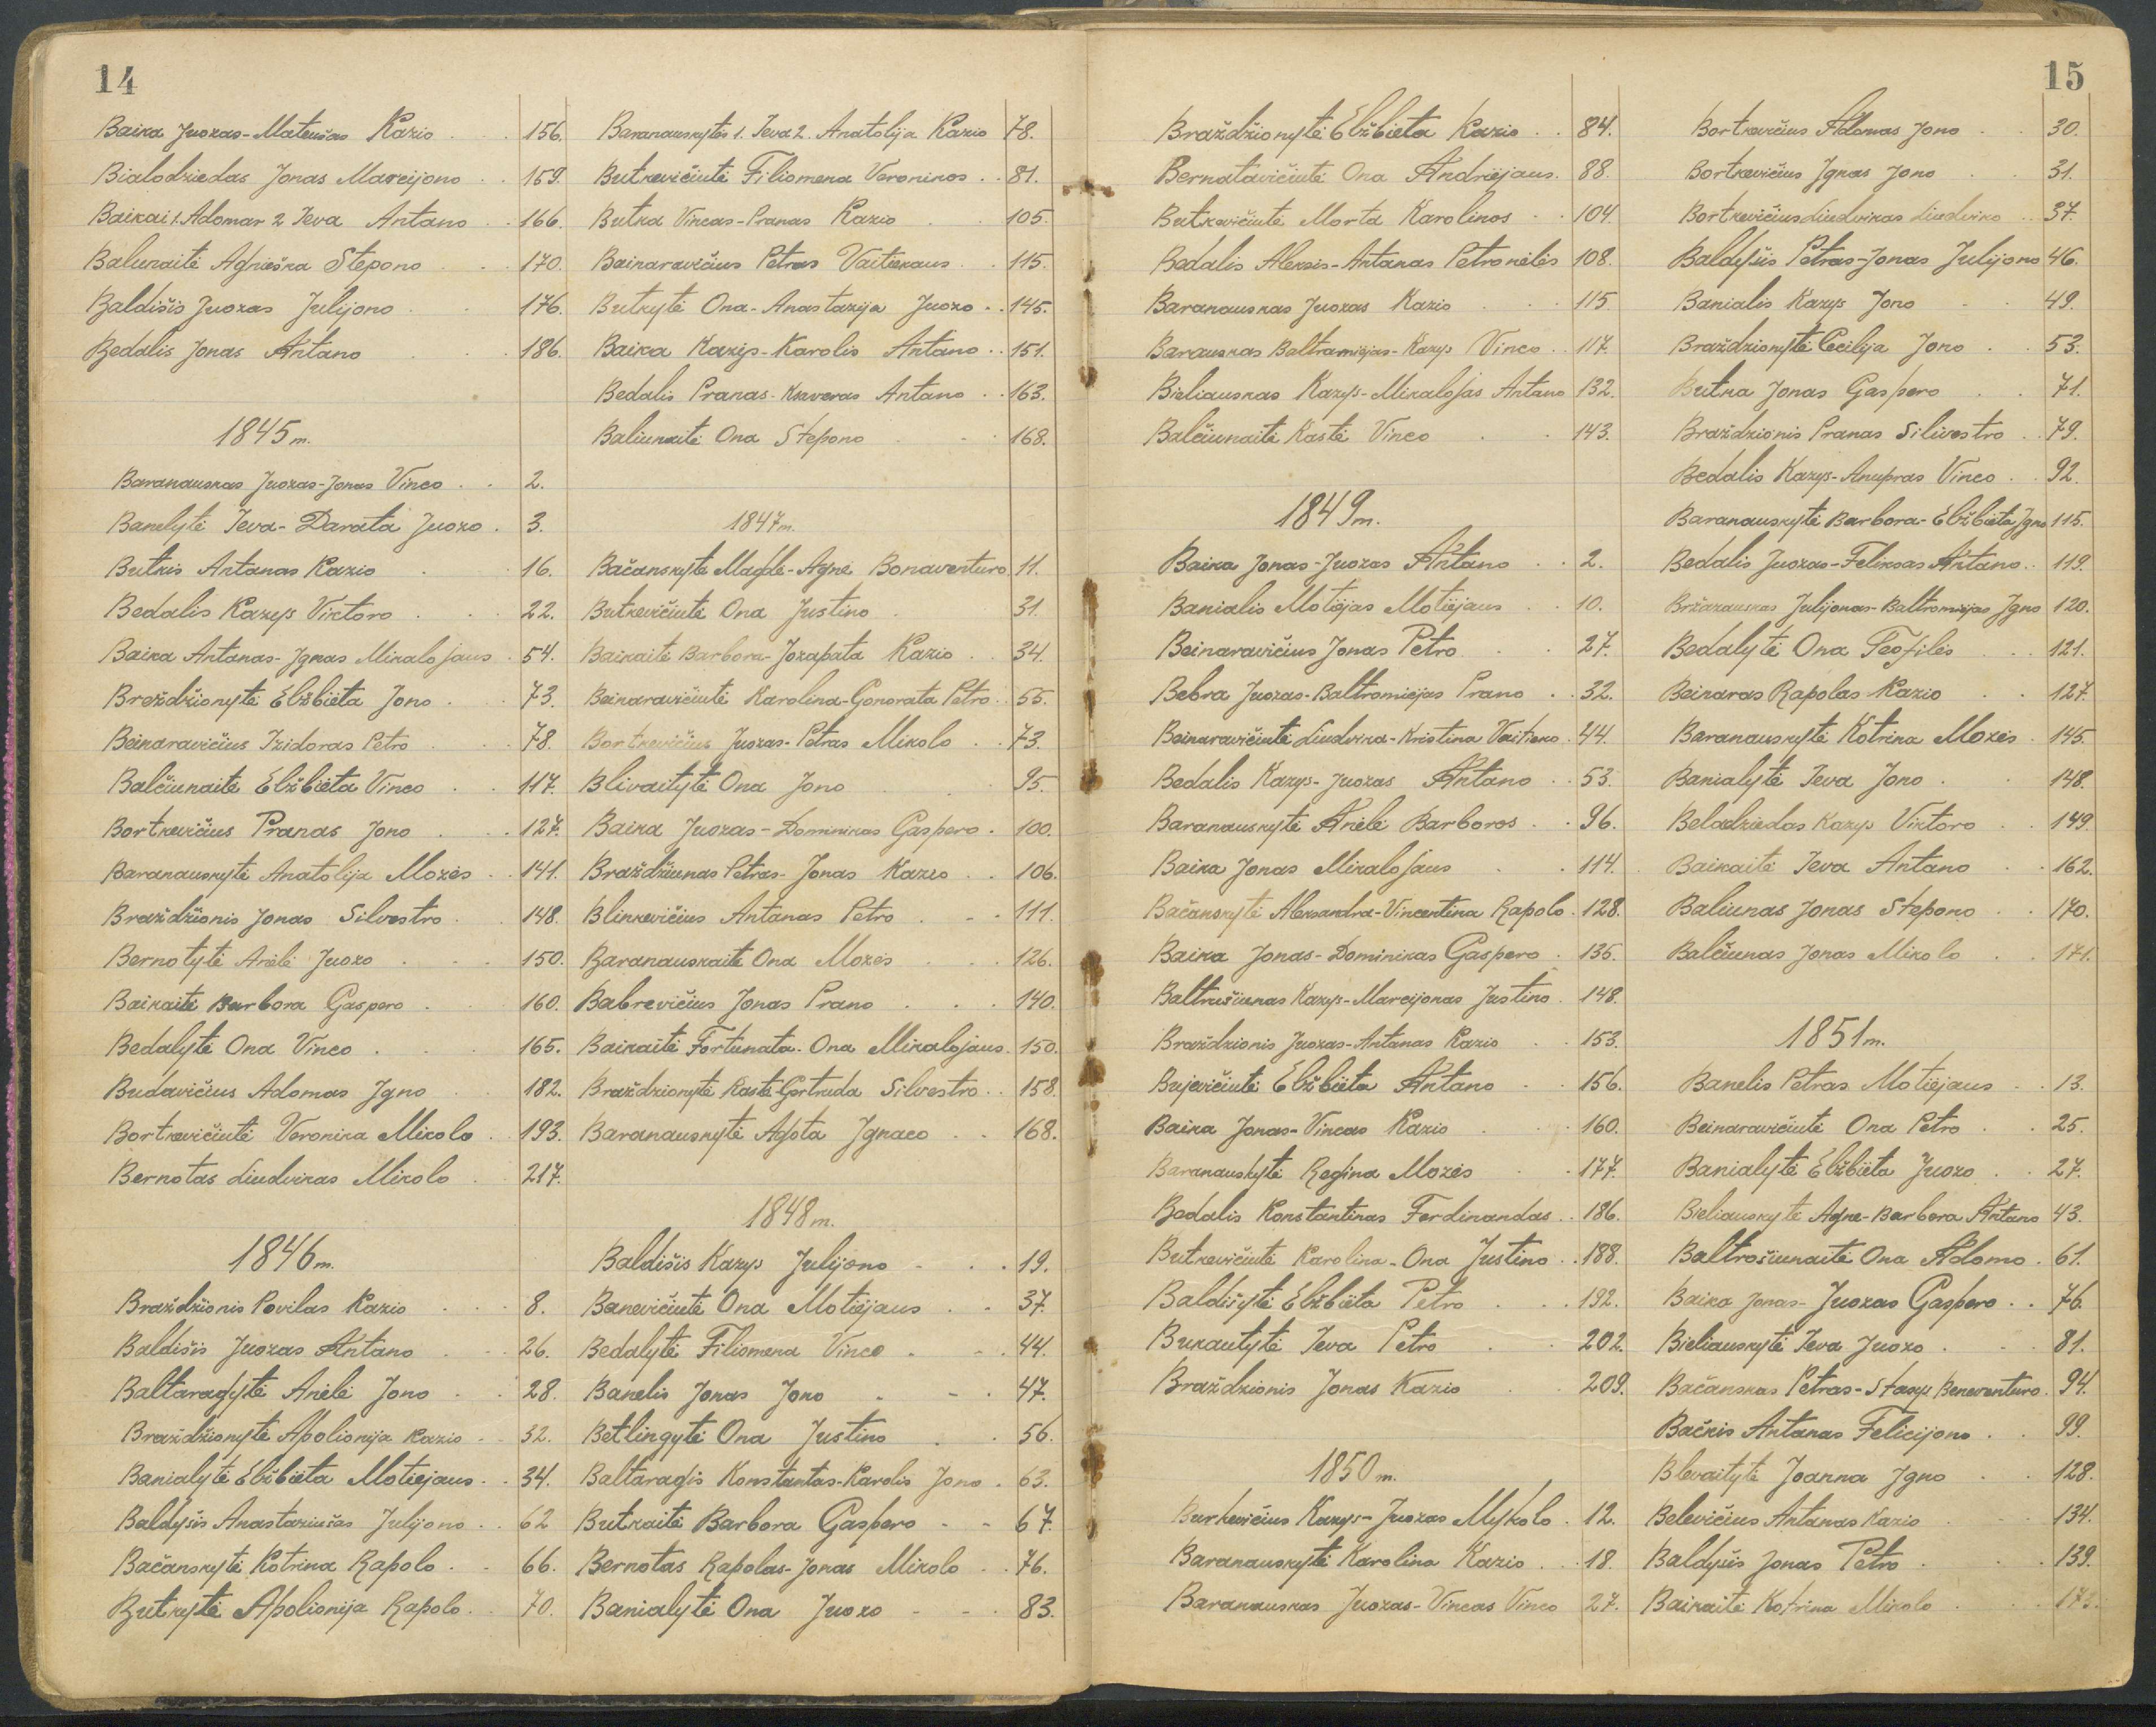 14
Baika Juozas-Mateušas Kazio 156.
Bialodziedas Jonas Marcijono 159.
Baikai 1. Adomar 2 Ieva Antano 166.
Baliunaitė Agnieška Stepono 170.
Baldišis Juozas Julijono 176.
Bedalis Jonas Antano 186.
1845 m.
Baranauskas Juozas-Jonas Vinco 2.
Banelytė Ieva-Darata Juozo 3.
Butkis Antanas Kazio 16.
Bedalis Kazys Viktoro 22.
Baika Antanas-Ignas Mikalojaus 54.
Breždžionytė Elžbieta Jono 73.
Beinaravičius Izidoras Petro 78.
Balčiunaitė Elžbieta Vinco 117.
Bortkevičius Pranas Jono 127.
Baranauskytė Anatolija Mozės 141.
Braždžionis Jonas Silvestro 148.
Bernotytė Anėlė Juozo 150.
Baikaitė Barbora Gaspero 160.
Bedalytė Ona Vinco 165.
Budavičius Adomas Igno 182.
Bortkevičiutė Veronika Mikolo 193.
Bernotas Liudvikas Mikolo 217.
1846 m.
Braždžionis Povilas Kazio 8.
Baldišis Juozas Antano 26.
Baltaragytė Anėlė Jono 28.
Braždžionytė Apolionija Kazio 32.
Banialytė Elžbieta Motiejaus 34.
Baldyšis Anastaziušas Julijono 62
Bačanskytė Kotrina Rapolo 66.
Butkytė Apolionija Rapolo 70.
Baranauskytės 1. Ieva 2. Anatolija Kazio 78.
Butkevičiutė Filiomena Veronikos 81.
Butka Vincas-Pranas Kazio 105.
Bainaravičius Petras Vaitiekaus 115.
Butkytė Ona-Anastazija Juozo 145.
Baika Kazys-Karolis Antano 151.
Bedalis Pranas-Ksaveras Antano 163.
Baliunaitė Ona Stepono 168.
1847 m.
Bačanskytė Magdė-Agnė Bonaventuro 11.
Butkevičiutė Ona Justino 31.
Baikaitė Barbora-Jozapata Kazio 34.
Beinaravičiutė Karolina-Gonorata Petro 55.
Bortkevičius Juozas-Petras Mikolo 73.
Blivaitytė Ona Jono 95.
Baika Juozas-Dominikas Gaspero 100.
Braždžiunas Petras-Jonas Kazio 106.
Blinkevičius Antanas Petro 111.
Baranauskaitė Ona Mozės 126.
Babrevičius Jonas Prano 140.
Baikaitė Fortunata-Ona Mikalojaus 150.
Braždzionytė Kastė-Gertruda Silvestro 158.
Baranauskytė Agota Ignaco 168.
1848 m.
Baldišis Kazys Julijono 19.
Banevičiutė Ona Motiejaus 37.
Bedalytė Filiomena Vinco 44.
Banelis Jonas Jono 47.
Betlingytė Ona Justino 56.
Baltaragis Konstantas-Karolis Jono 63.
Butkaitė Barbora Gaspero 67.
Bernotas Rapolas-Jonas Mikolo 76.
Banialytė Ona Juozo 83.
15
Braždžionytė Elžbieta Kazio 84.
Bernatavičiutė Ona Andriejaus 88.
Butkevičiutė Morta Karolinos 104.
Bedalis Aleksis-Antanas Petronėlės 108.
Baranauskas Juozas Kazio 115.
Barauskas Baltramiejus-Kazys Vinco 117.
Bieliauskas Kazys-Mikalojas Antano 132.
Balčiunaitė Kastė Vinco 143.
1849 m.
Baika Jonas-Juozas Antano 2.
Banialis Motiejas Motiejaus 10.
Beinaravičius Jonas Petro 27.
Bebra Juozas-Baltromiejas Prano 32.
Beinaravičiutė Liudvika-Kristina Vaitieko 44.
Bedalis Kazys-Juozas Antano 53.
Baranauskytė Anėlė Barboros 96.
Baika Jonas Mikalojaus 114.
Bačanskytė Aleksandra-Vincentina Rapolo 128.
Baika Jonas-Dominikas Gaspero 135.
Baltrušiunas Kazys-Marcijonas Justino 148.
Braždzionis Juozas-Antanas Kazio 153.
Bujevičiutė Elžbieta Antano 156.
Baika Jonas-Vincas Kazio 160.
Baranauskytė Regina Mozės 177.
Bedalis Konstantinas Ferdinandas 186.
Butkevičiutė Karolina-Ona Justino 188.
Baldišytė Elžbieta Petro 192.
Bukautytė Ieva Petro 202.
Braždzionis Jonas Kazio 209.
1850 m.
Burkevičius Kazys-Juozas Mykolo 12.
Baranauskytė Karolina Kazio 18.
Baranauskas Juozas-Vincas Vinco 27.
Bortkevičius Adomas Jono 30.
Bortkevičius Ignas Jono 31.
Bortkevičius Liudvikas Liudviko 37.
Baldyšis Petras-Jonas Julijono 46.
Banialis Kazys Jono 49.
Braždzionytė Cecilija Jono 53.
Butka Jonas Gaspero 71.
Braždzionis Pranas Silivestro 79.
Bedalis Kazys-Anupras Vinco 92.
Baranauskytė Barbora-Elžbieta Igno 115.
Bedalis Juozas-Feliksas Antano 119.
Bržazauskas Julijonas-Baltromiejas Igno 120.
Bedalytė Ona Teofilės 121.
Beinaras Rapolas Kazio 127.
Baranauskytė Kotrina Mozės 145.
Banialytė Ieva Jono 148.
Beladziedas Kazys Viktoro 149.
Baikaitė Ieva Antano 162.
Baliunas Jonas Stepono 170.
Balčiunas Jonas Mikolo 171.
1851 m.
Banelis Petras Motiejaus 13.
Beinaravičiutė Ona Petro 25.
Banialytė Elžbieta Juozo 27.
Bieliauskytė Agnė-Barbora Antano 43.
Baltrošiunaitė Ona Adomo 61.
Baika Jonas-Juozas Gaspero 76.
Bieliauskytė Ieva Juozo 81.
Bačanskas Petras-Stasys Beneventuro 94.
Bačkis Antanas Felicijono 99.
Blevaitytė Joanna Igno 128.
Belevičius Antanas Kazio 134.
Baldyšis Jonas Petro 139.
Baikaitė Kotrina Mikolo